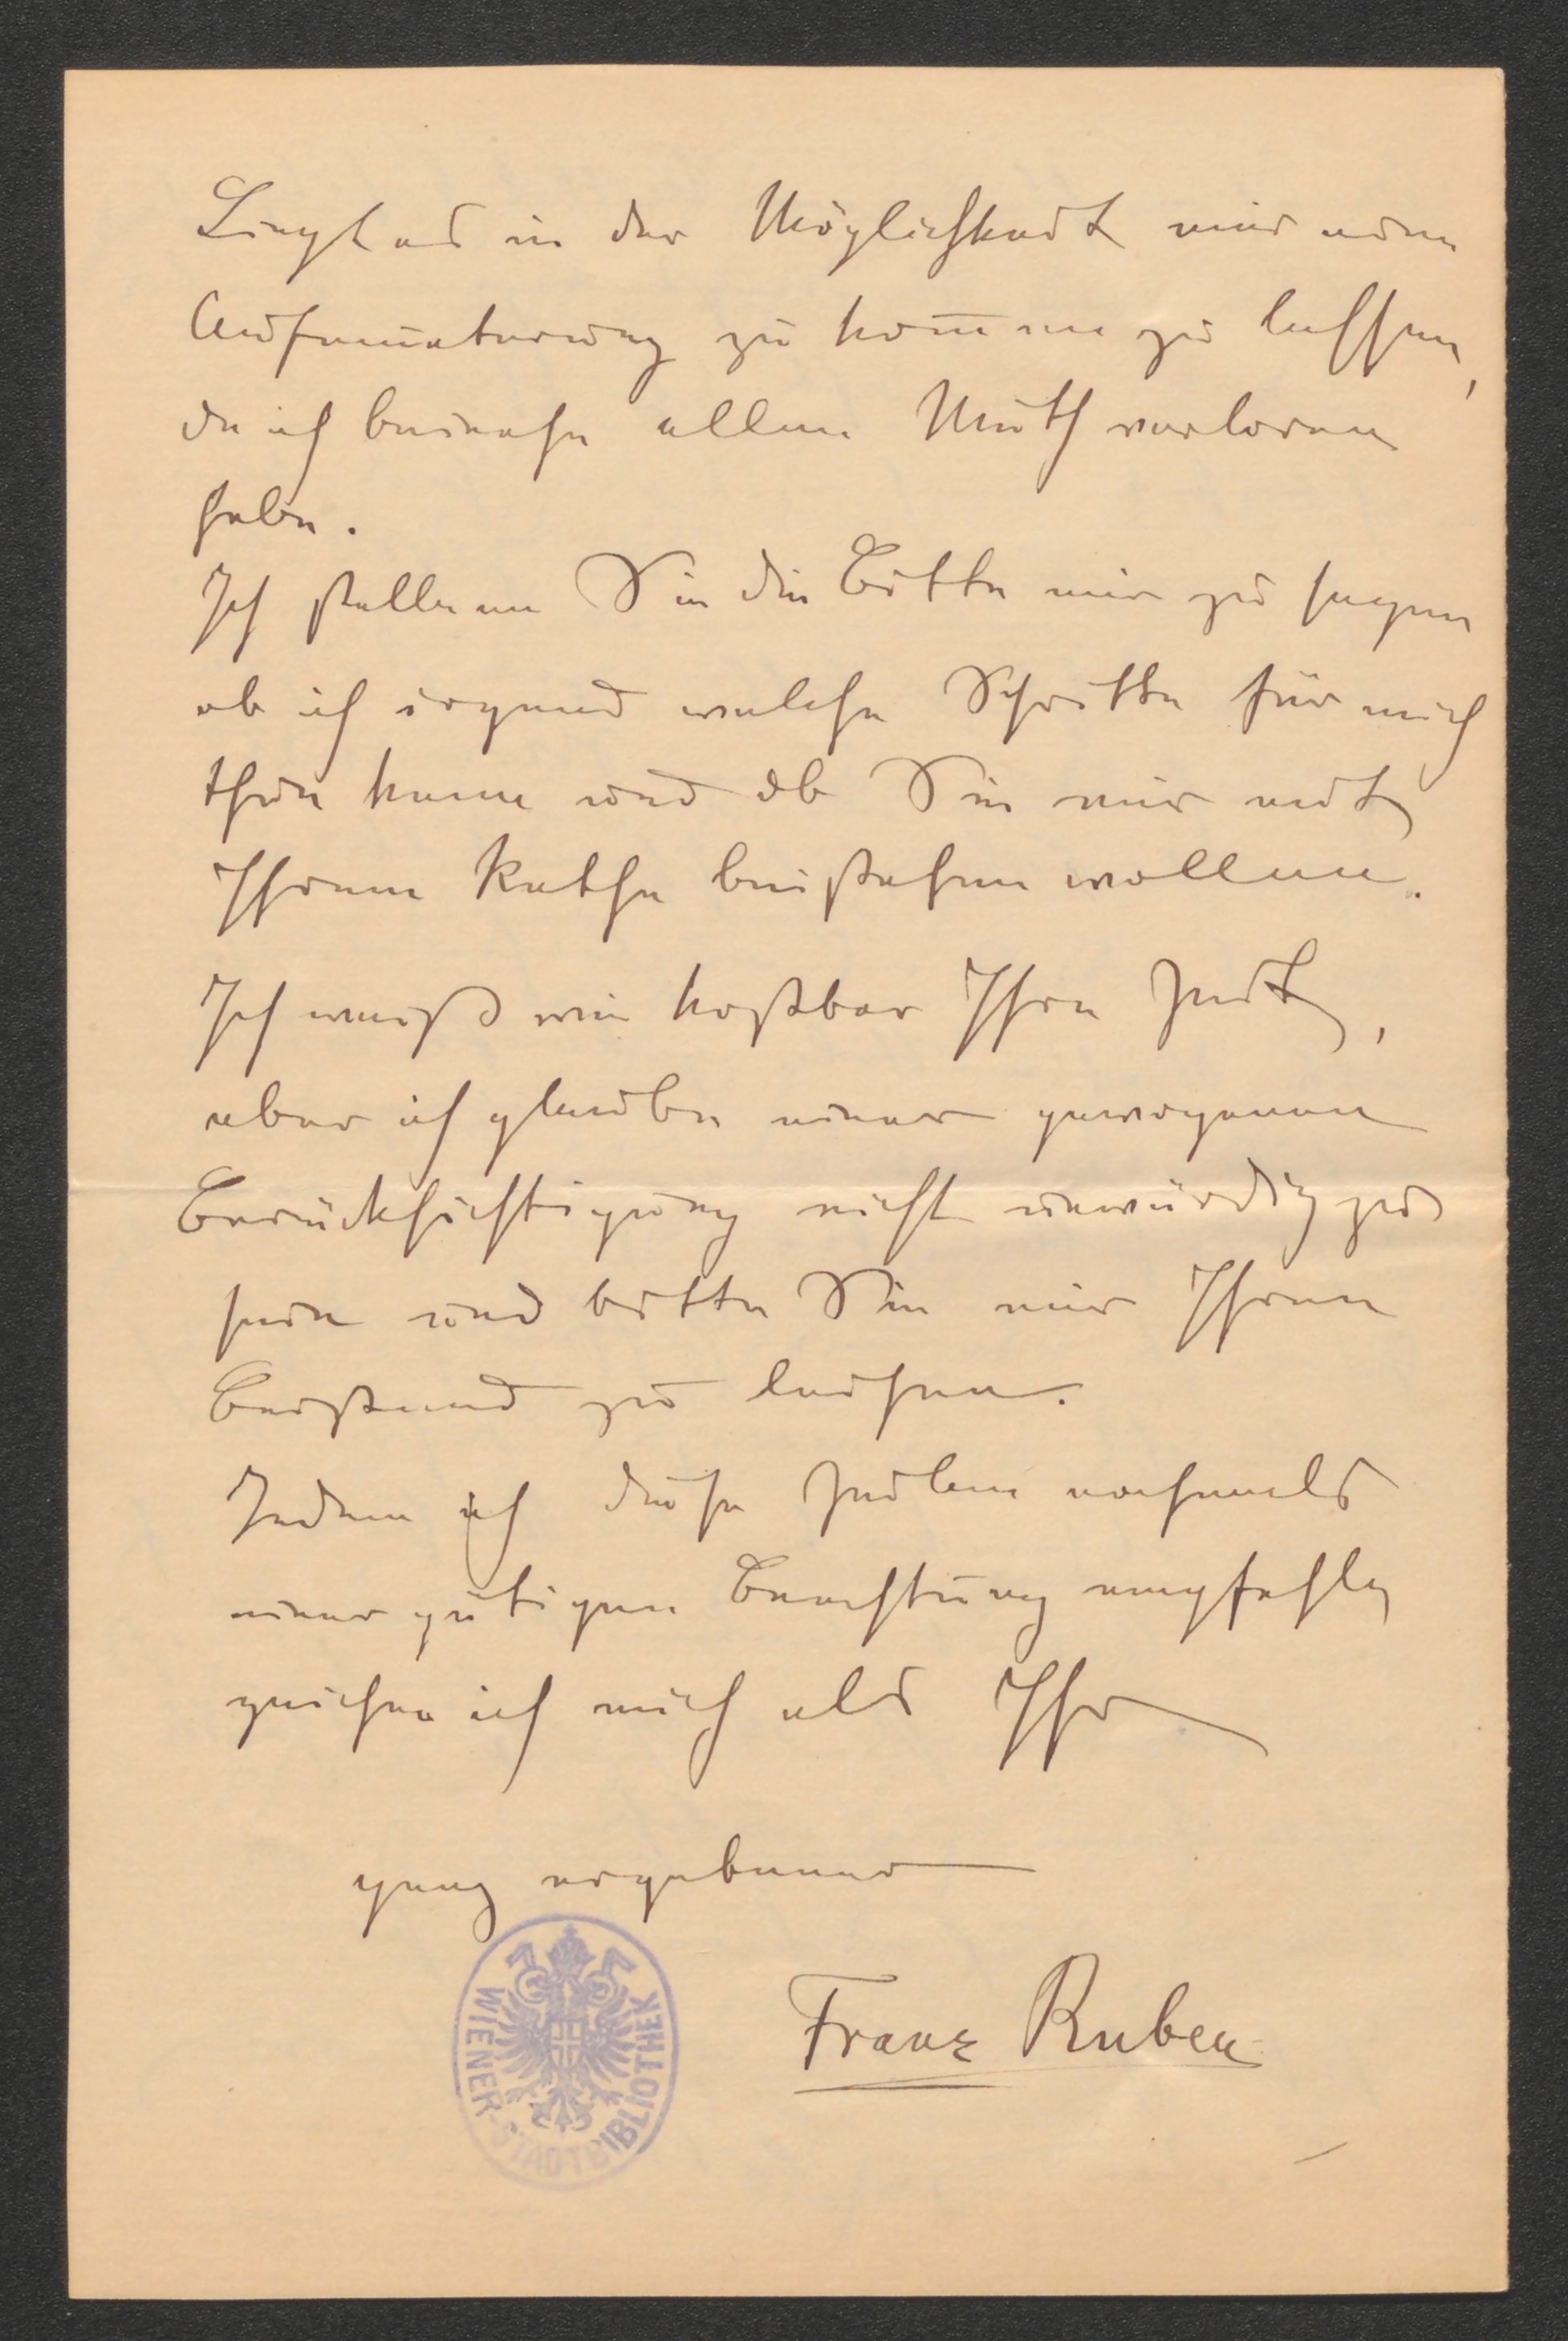 Liegt es in der Möglichkeit mir eine
Aufmunterung zu kommen zu lassen,
da ich beinahe allen Muth verloren
habe.
Ich stelle an Sie die Bitte mir zu sagen
ob ich irgend welche Schritte für mich
thun kann und ob Sie mir mit
Ihrem Rathe beistehen wollen.
Ich weiß wie kostbar Ihre Zeit,
aber ich glaube einer gewogenen
Berücksichtigung nicht unwürdig zu
sein und bitte Sie mir Ihren
Beistand zu leihen.
Indem ich diese Zeilen nochmals
einer gütigen Beachtung empfehle
zeichne ich mich als Ihr
ganz ergebener
Franz Ruben
WIENER-STADTBIBLIOTHEK